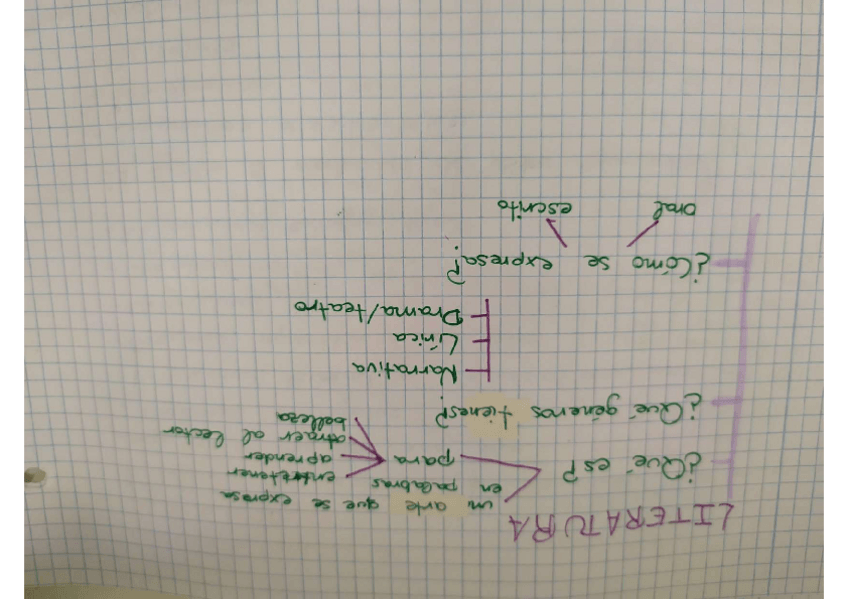 LITERATURA
¿Qué es?
un arte que se expresa
en palabras
para
entretener
aprender
atraer al lector
belleza
¿Qué géneros tienes?
Narrativa
Lírica
Drama/teatro
¿Cómo se expresa?
oral escrito